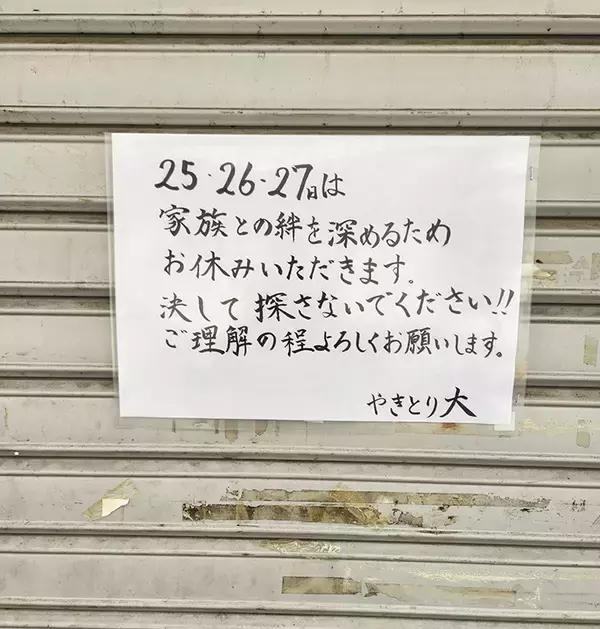 25・26・27日は
家族との絆を深めるため
お休みいただきます。
決して探さないでください!!
ご理解の程よろしくお願いします。
やきとり大